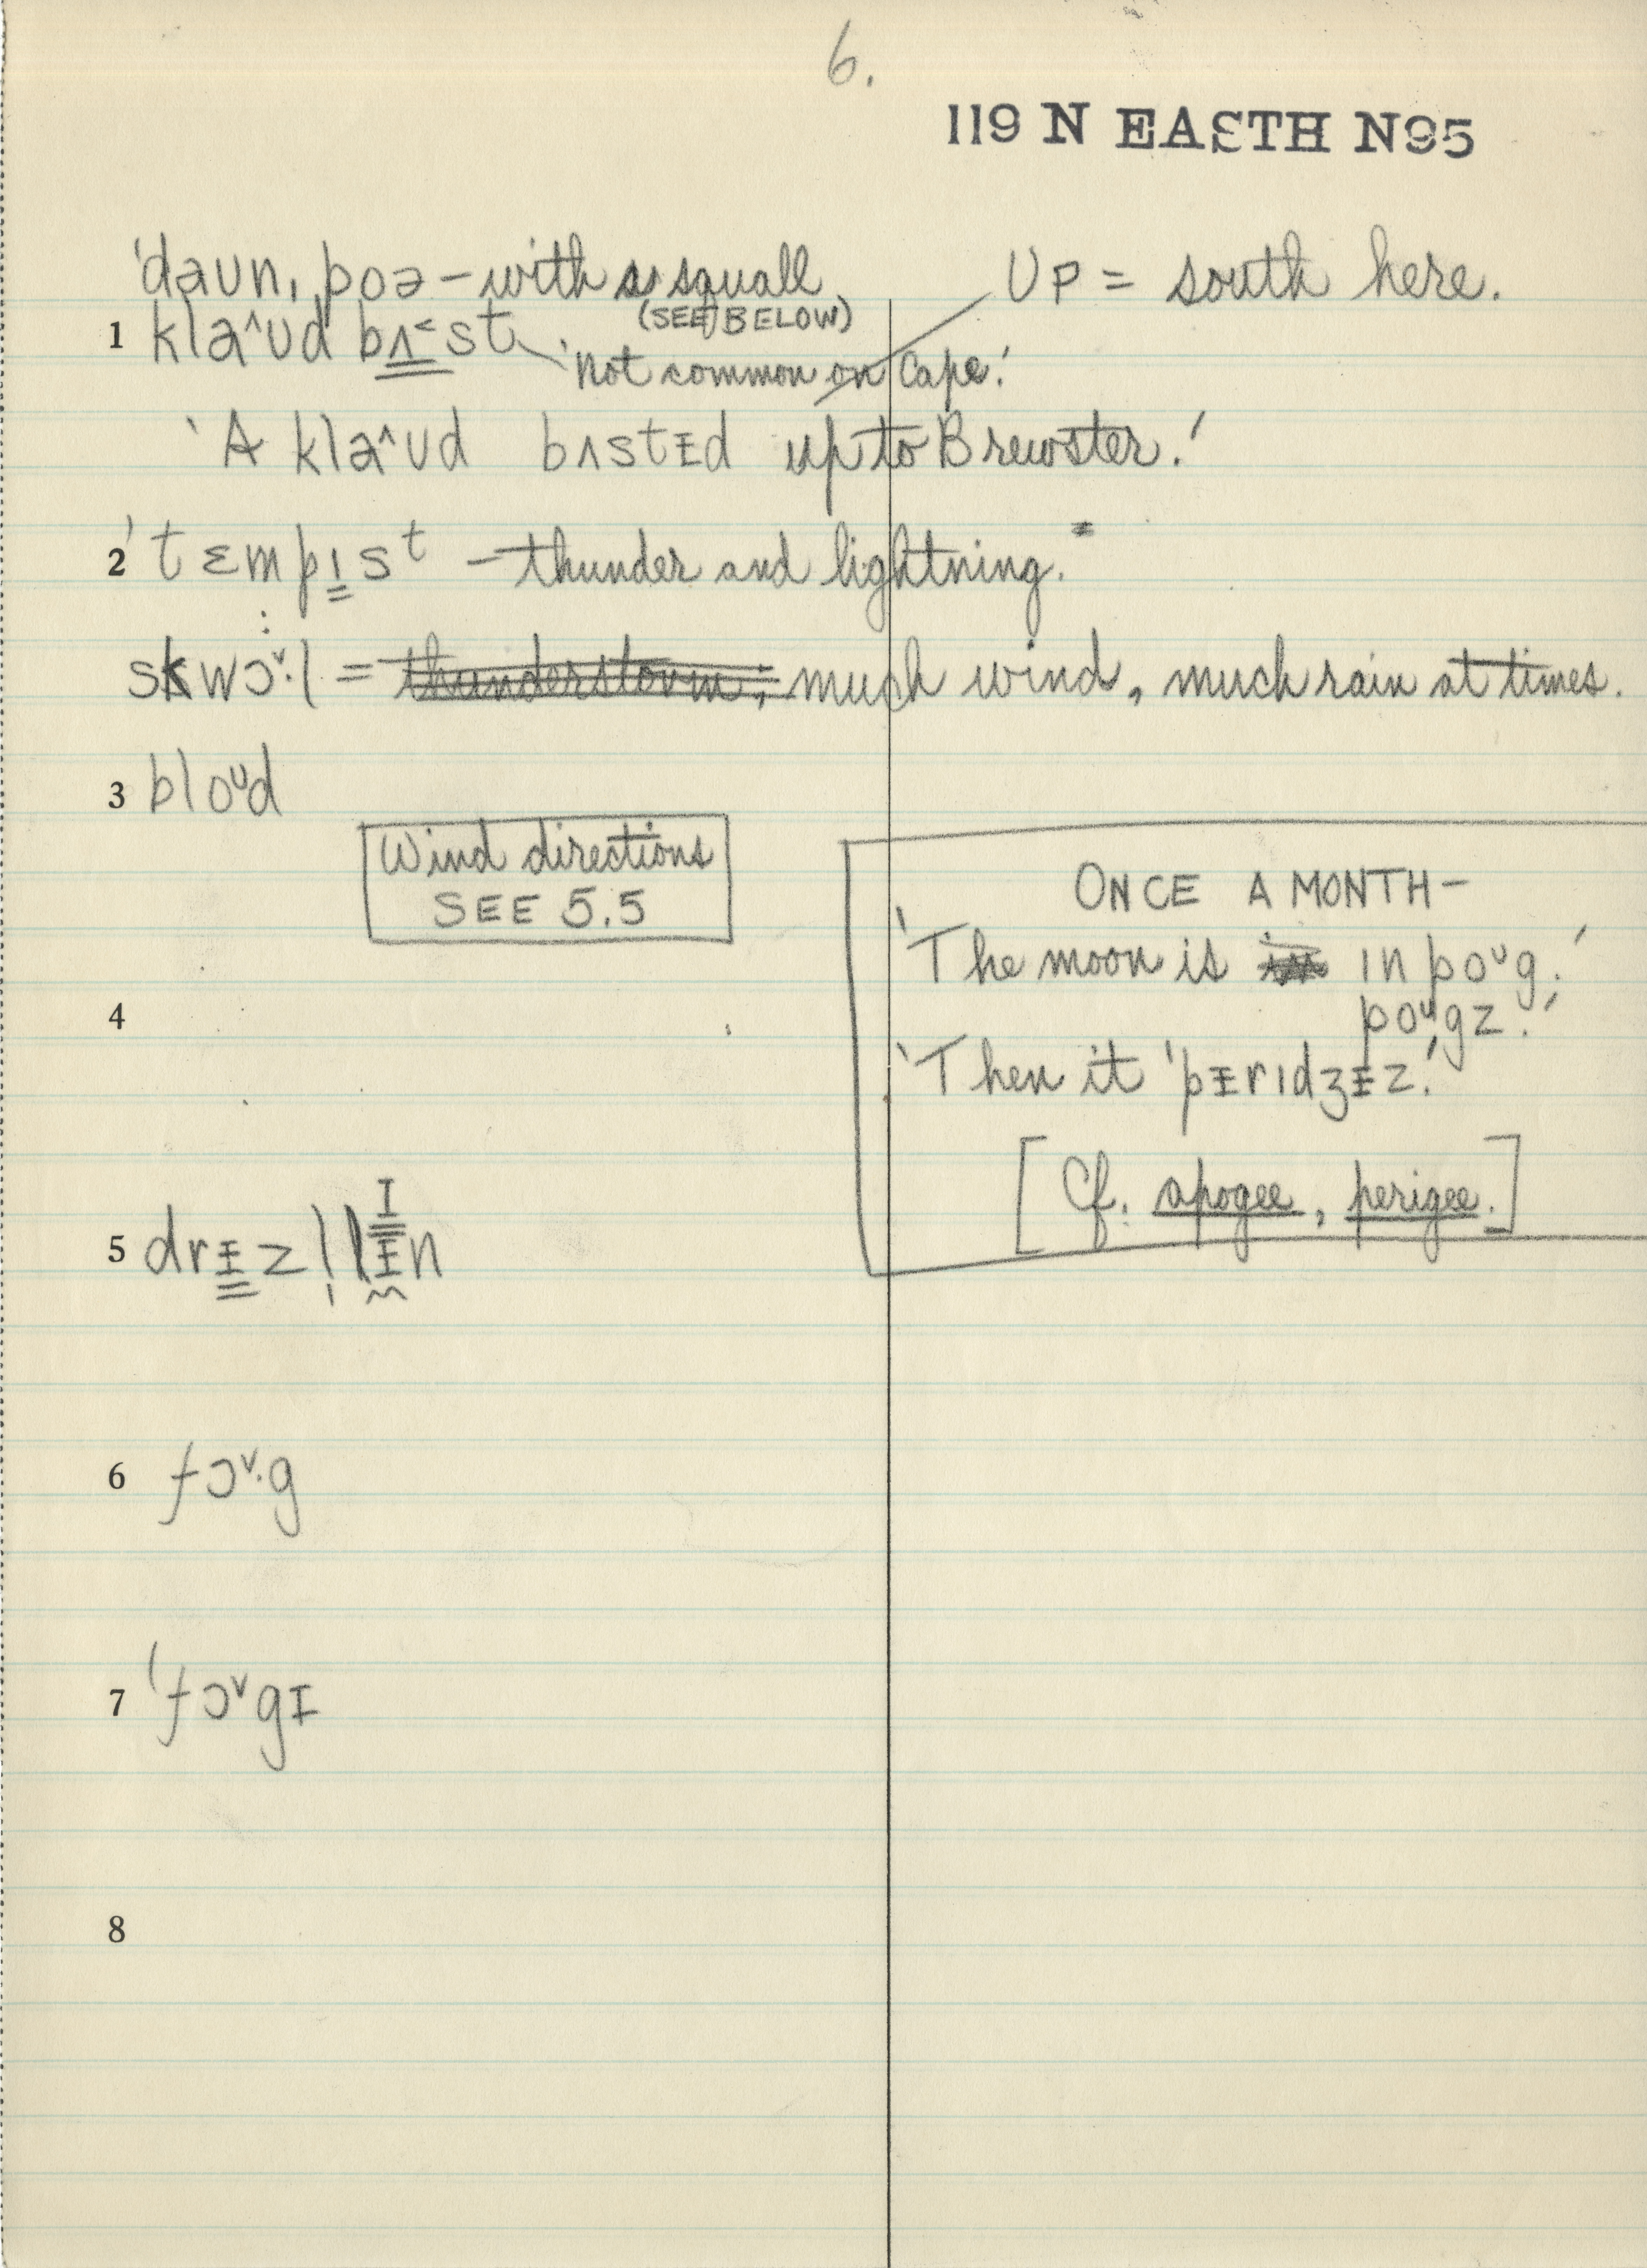 6.
119 N EASTH N95
'daʊn, poə – with a squall
(SEE BELOW)
UP = south here.
1 klə^ʊd bʌ˂st
'Not common on Cape.'
'A klə^ʊd bʌstɪd up to Brewster.'
2 'tɛmpɪst – thunder and lightning.
skwɔˇ·l = thunderstorm; much wind, much rain at times.
3 bloᶷd
Wind directions
SEE 5.5
ONCE A MONTH –
'The moon is in ɪn poᶷg.'
4
poᶷgz.'
'Then it 'pɪrɪdʒɪz.'
[Cf. apogee, perigee.]
5 drɪzl̩lɪn
6 fɔˇ·g
7 'fɔˇgɪ
8